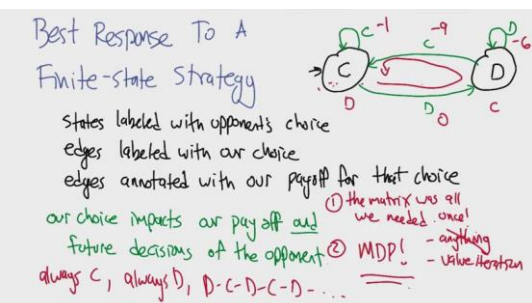 Best Response To A
Finite-state Strategy
states labeled with opponent's choice
edges labeled with our choice
edges annotated with our payoff for that choice
our choice impacts our payoff and
future decisions of the opponent
always C, always D, D-C-D-C-D-...
① the matrix was all
we needed once!
② MDP!
- anything
- value iteration
C -1
-9
C
D
-6
C
D
D
D
0
C